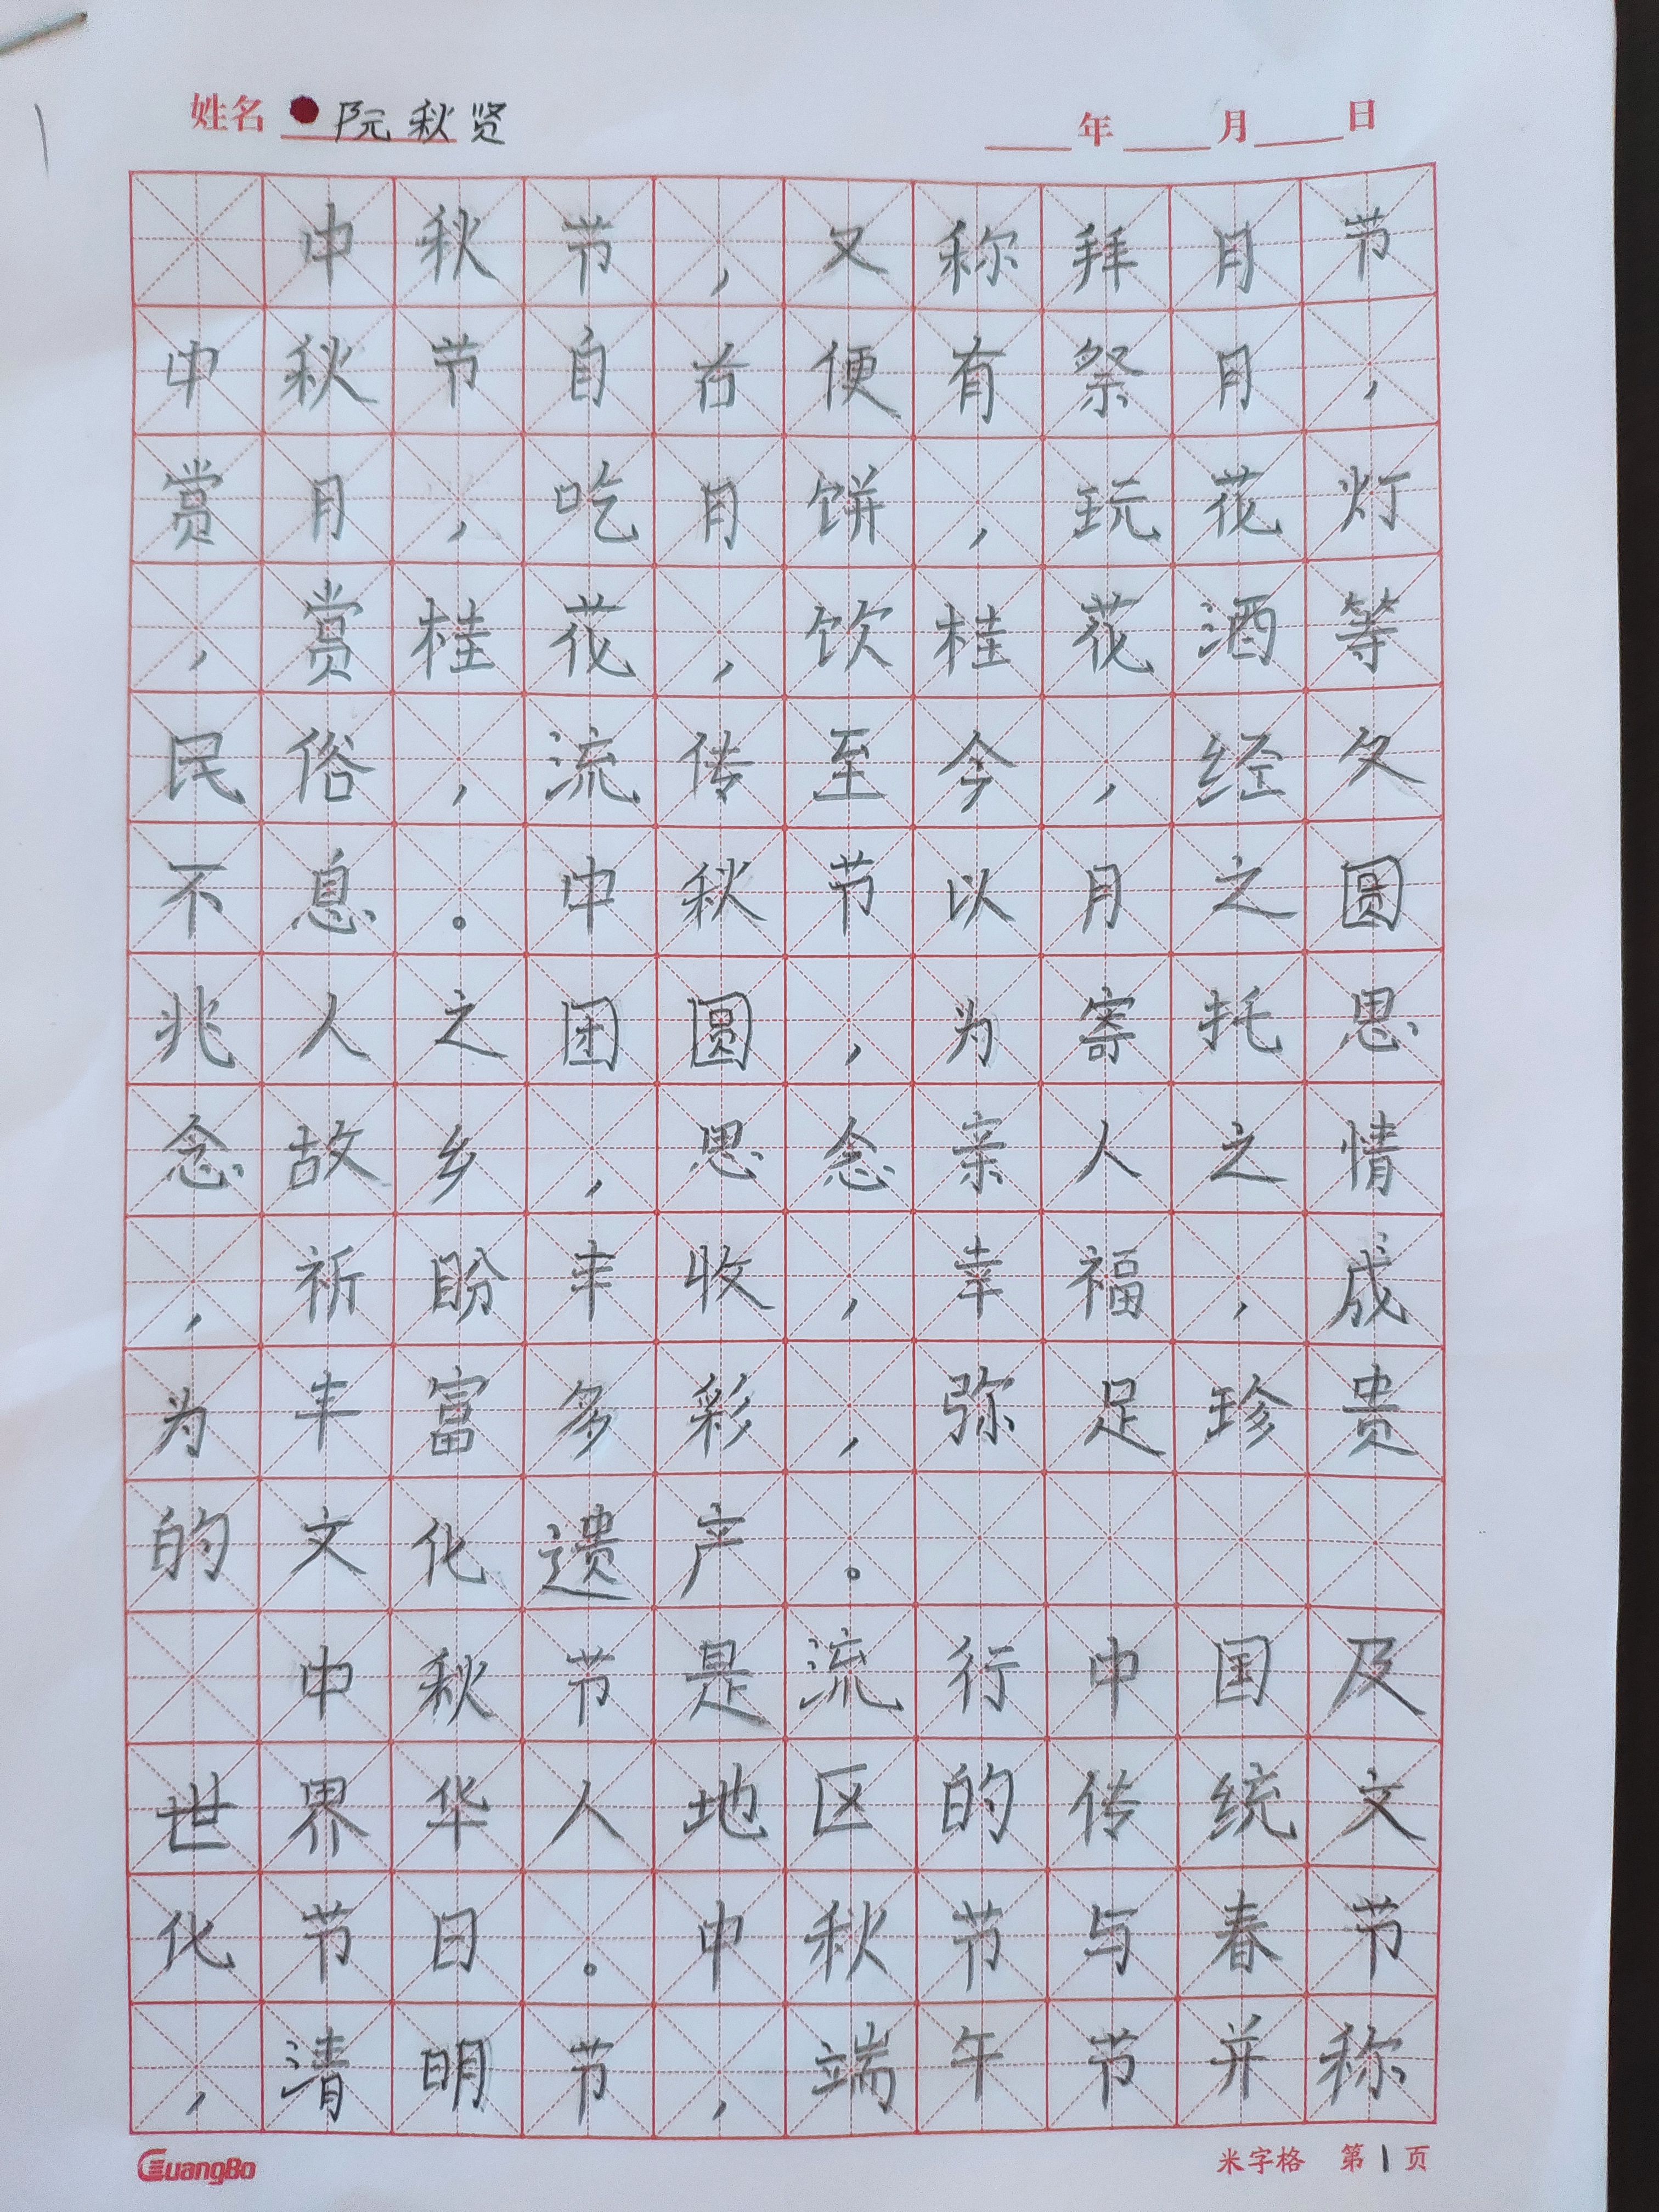 姓名 阮秋贤 年 月 日
中秋节,又称拜月节
中秋节自古便有祭月,
赏月,吃月饼,玩花灯
,赏桂花,饮桂花酒等
民俗,流传至今,经久
不息。中秋节以月之圆
兆人之团圆,为寄托思
念故乡,思念亲人之情
,祈盼丰收,幸福,成
为丰富多彩,弥足珍贵
的文化遗产。
中秋节是流行中国及
世界华人地区的传统文
化节日。中秋节与春节
,清明节,端午节并称
GuangBo 米字格 第1页